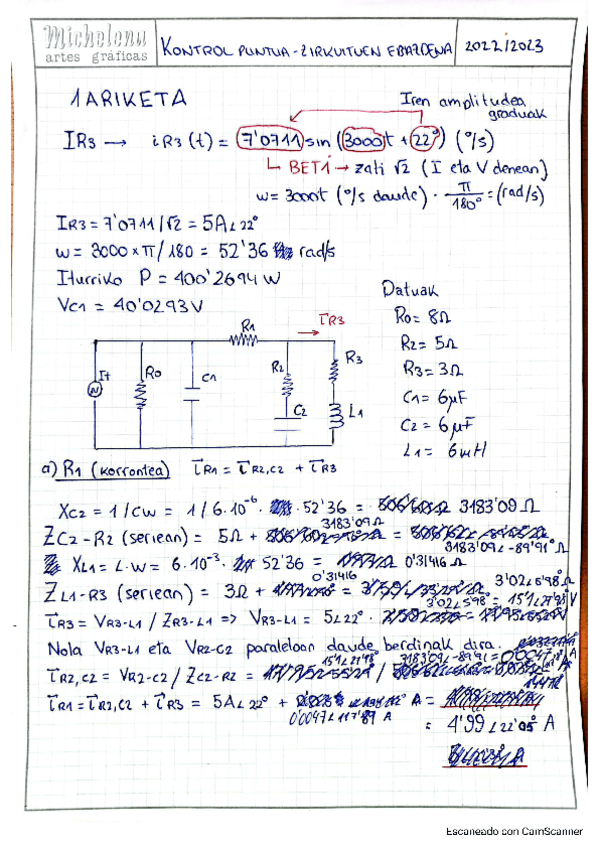 Michelena
artes gráficas
KONTROL PUNTUA - ZIRKUITUEN EBAZPENA
2022/2023
1 ARIKETA
Iren amplitudea
graduak
IR3 → iR3(t) = 7'0711 sin (3000t + 22°) (°/s)
↳ BETI → zati √2 (I eta V denean)
w = 3000t (°/s daude) · π/180° = (rad/s)
IR3 = 7'0711/√2 = 5A∠22°
w = 3000 × π/180 = 52'36 rad/s
Iturriko P = 400'2694 W
VC1 = 40'0293 V
Datuak
R0 = 8Ω
R2 = 5Ω
R3 = 3Ω
C1 = 6μF
C2 = 6μF
L1 = 6mH
R1
IR3
It
R0
C1
R2
C2
R3
L1
a) R1 (korrontea) IR1 = IR2,C2 + IR3
XC2 = 1/CW = 1/6·10⁻⁶ · 52'36 = 3183'09 Ω
ZC2-R2 (seriean) = 5Ω + 3183'09 Ω = 3183'09∠-89'91° Ω
XL1 = L·W = 6·10⁻³ · 52'36 = 0'31416 Ω
ZL1-R3 (seriean) = 3Ω + 0'31416 = 3'02∠5'98° Ω
IR3 = VR3-L1 / ZR3-L1 => VR3-L1 = 5∠22° · 3'02∠5'98° = 15'1∠27'98° V
Nola VR3-L1 eta VR2-C2 paraleloan daude, berdinak dira.
IR2,C2 = VR2-C2 / ZC2-R2 = 15'1∠27'98° / 3183'09∠-89'91° = 0'0047∠117'89° A
IR1 = IR2,C2 + IR3 = 5A∠22° + 0'0047∠117'89° A =
= 4'99∠22'05° A
Escaneado con CamScanner